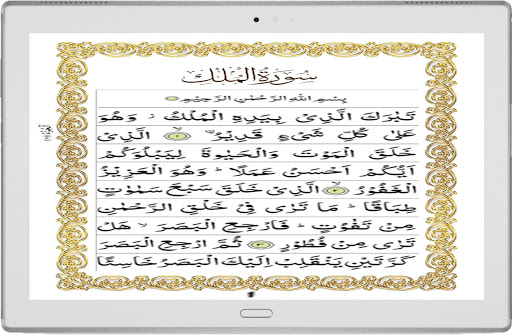 سُوۡرَةُ الۡمُلۡكِ
بِسۡمِ اللهِ الرَّحۡمٰنِ الرَّحِيۡمِ
تَبٰرَكَ الَّذِىۡ بِيَدِهِ الۡمُلۡكُ وَهُوَ
عَلٰى كُلِّ شَىۡءٍ قَدِيۡرُ ۙ‏ ﴿۱﴾ اۨلَّذِىۡ
خَلَقَ الۡمَوۡتَ وَالۡحَيٰوةَ لِيَبۡلُوَكُمۡ
اَيُّكُمۡ اَحۡسَنُ عَمَلًا ؕ وَهُوَ الۡعَزِيۡزُ
الۡغَفُوۡرُ ۙ‏ ﴿۲﴾ الَّذِىۡ خَلَقَ سَبۡعَ سَمٰوٰتٍ
طِبَاقًا ؕ مَا تَرٰى فِىۡ خَلۡقِ الرَّحۡمٰنِ
مِنۡ تَفٰوُتٍ ؕ فَارۡجِعِ الۡبَصَرَ ۙ هَلۡ
تَرٰى مِنۡ فُطُوۡرٍ‏ ﴿۳﴾ ثُمَّ ارۡجِعِ الۡبَصَرَ
كَرَّتَيۡنِ يَنۡقَلِبۡ اِلَيۡكَ الۡبَصَرُ خَاسِئًا